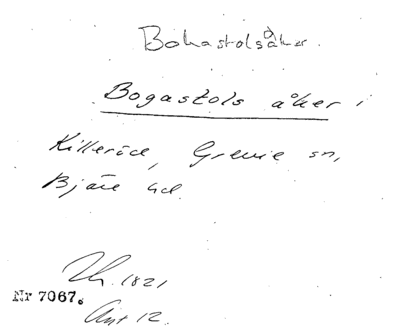 Bohastolsåker.
Bogastols åker i
Killeröd, Grevie sn,
Bjäre hd.
1821
Nr 7067.
12.